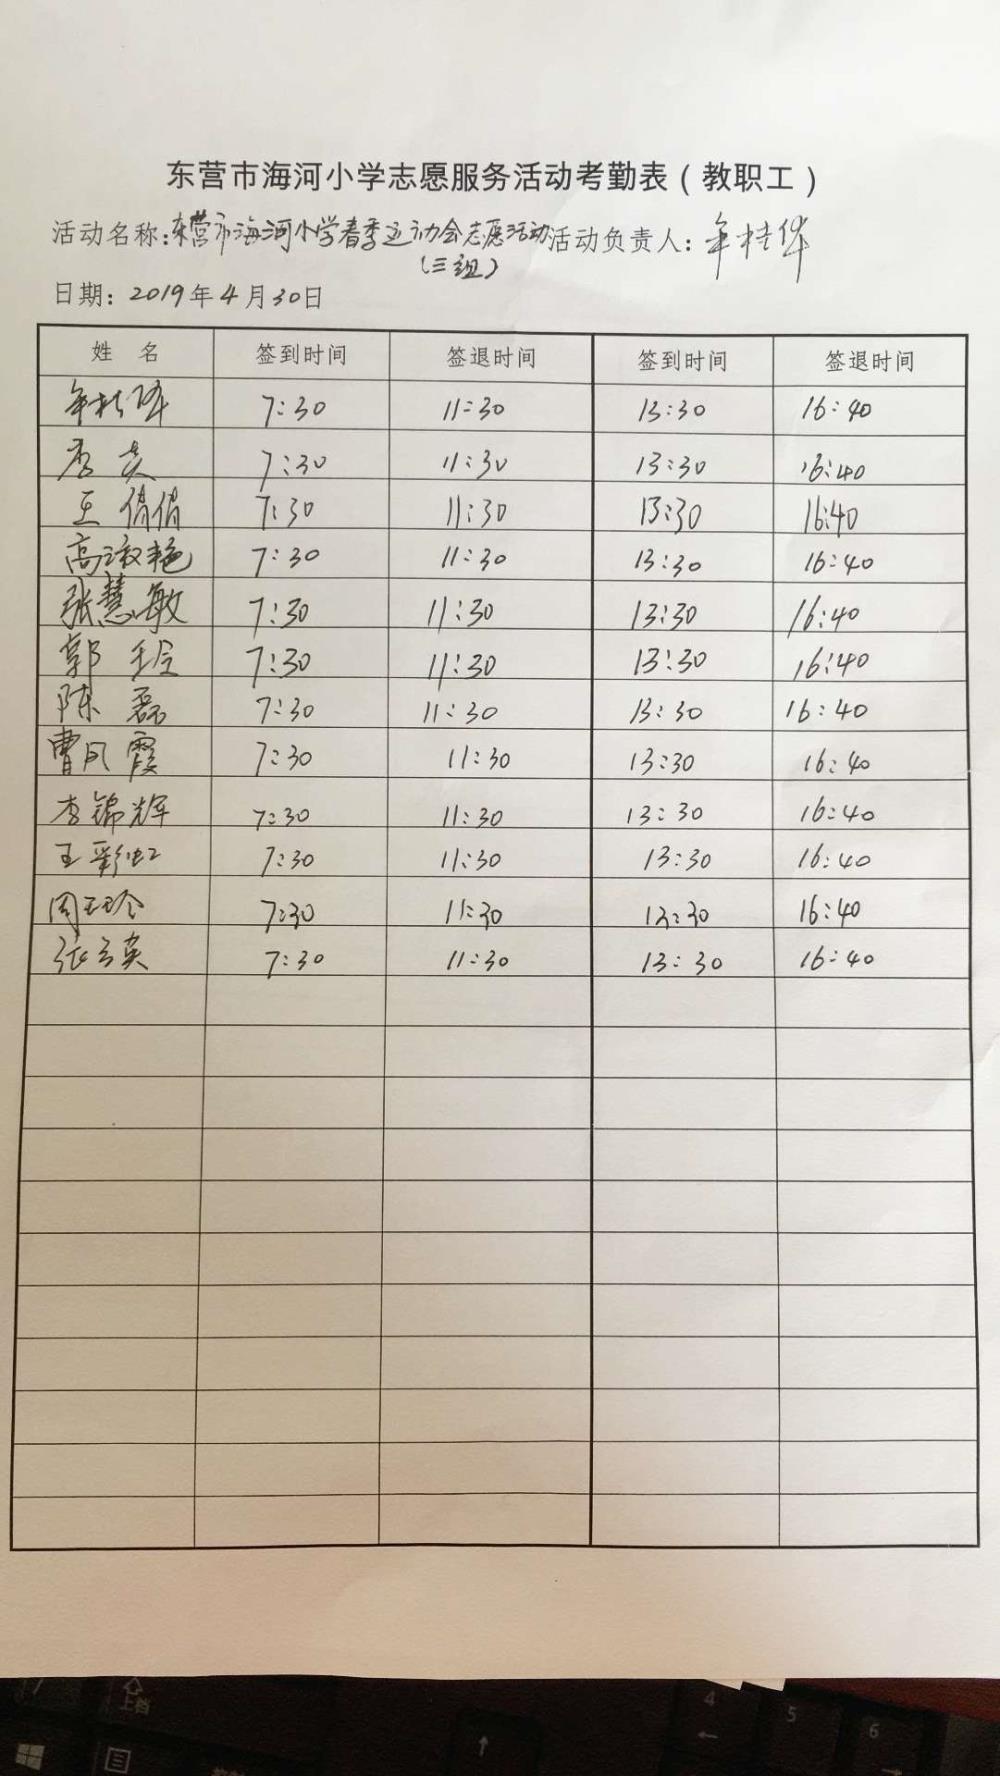 东营市海河小学志愿服务活动考勤表（教职工）
活动名称：东营市海河小学春季运动会志愿活动 活动负责人：牟桂华
（三组）
日期：2019年4月30日
姓 名 签到时间 签退时间 签到时间 签退时间
牟桂华 7:30 11:30 13:30 16:40
7:30 11:30 13:30 16:40
王倩倩 7:30 11:30 13:30 16:40
高淑艳 7:30 11:30 13:30 16:40
张慧敏 7:30 11:30 13:30 16:40
郭玲 7:30 11:30 13:30 16:40
陈磊 7:30 11:30 13:30 16:40
曹凤霞 7:30 11:30 13:30 16:40
李锦辉 7:30 11:30 13:30 16:40
王彩虹 7:30 11:30 13:30 16:40
周玉玲 7:30 11:30 13:30 16:40
张云英 7:30 11:30 13:30 16:40
上档
4
5
6